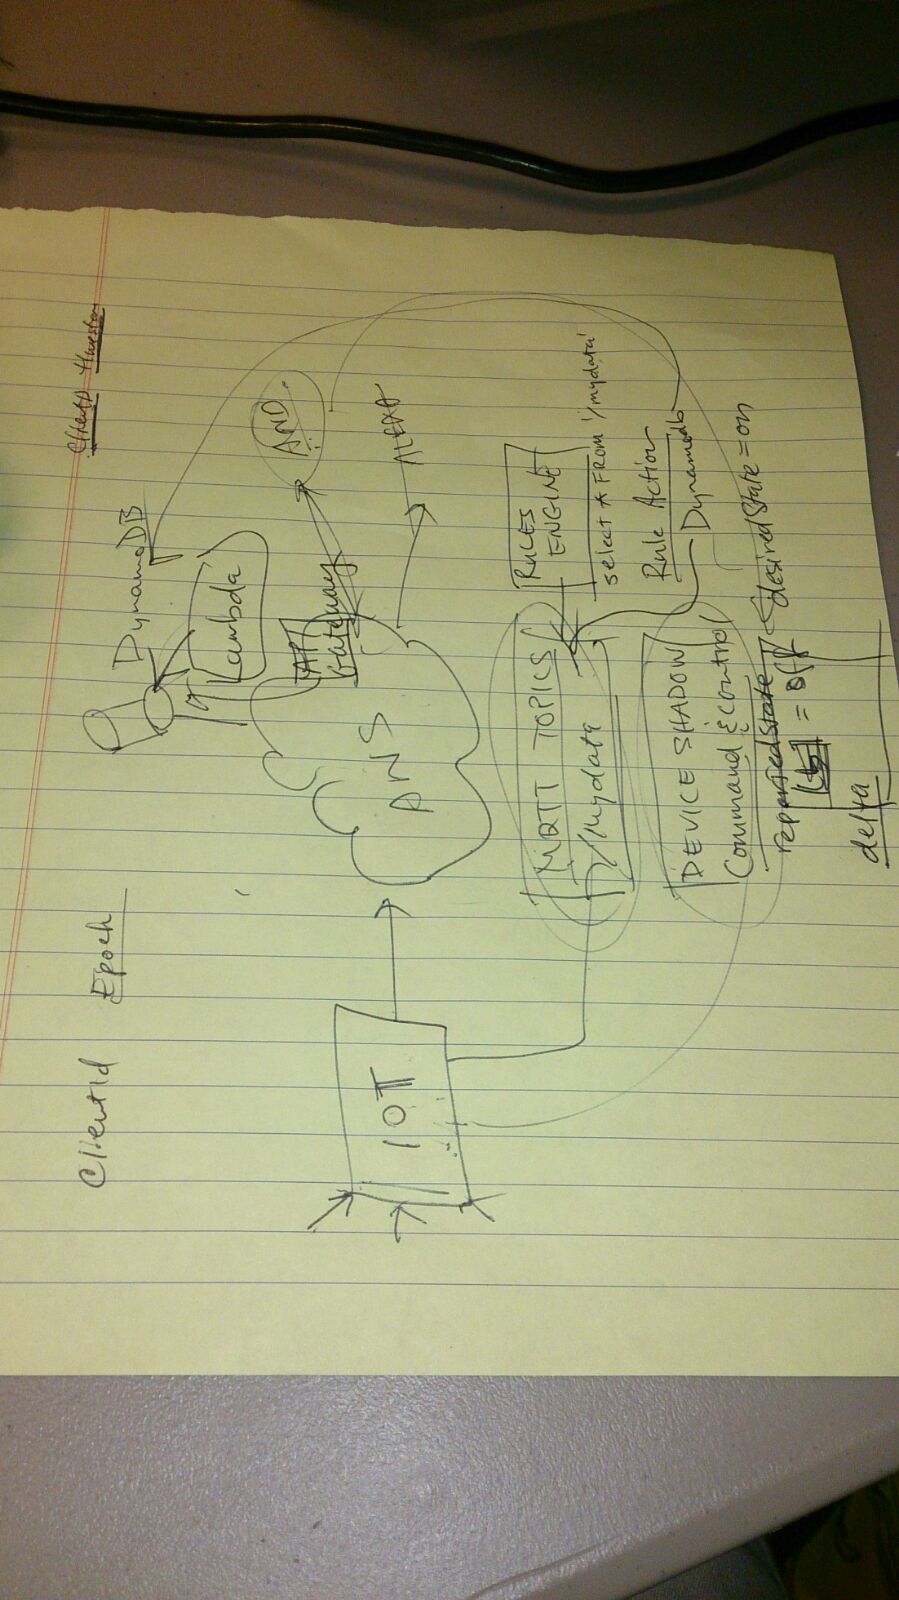 ClientId Epoch
DynamoDB
Lambda
API
Gateway
AND.
ALEXA
AWS
IOT
MQTT TOPICS
/mydata
RULES
ENGINE
select * FROM '/mydata'
Rule Action
Dynamodb
DEVICE SHADOW
Command & Control
reportedState = off
desiredState = on
delta